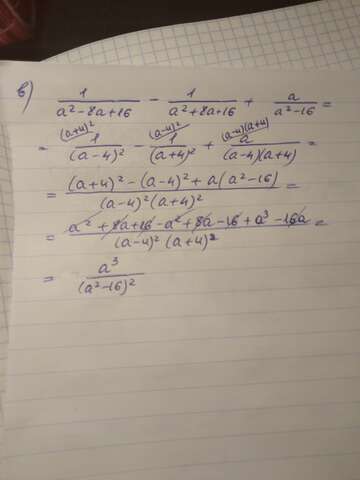 в) 1/(a²-8a+16) - 1/(a²+8a+16) + a/(a²-16) =
= (a+4)² 1/(a-4)² - (a-4)² 1/(a+4)² + (a-4)(a+4) a/((a-4)(a+4)) =
= ((a+4)² - (a-4)² + a(a²-16))/((a-4)²(a+4)²) =
= (a² + 8a + 16 - a² + 8a - 16 + a³ - 16a)/((a-4)² (a+4)²) =
= a³/(a²-16)²